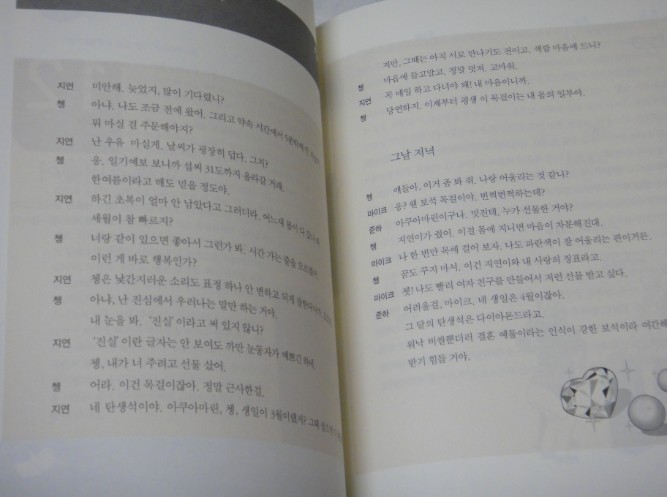 지연 미안해. 늦었지, 많이 기다렸니?
쳉 아냐. 나도 조금 전에 왔어. 그리고 약속 시간에서
뭐 마실 걸 주문해야지?
지연 난 우유 마실게. 날씨가 굉장히 덥다. 그치?
쳉 응, 일기예보 보니까 섭씨 31도까지 올라갈 거래.
한여름이라고 해도 믿을 정도야.
지연 하긴 초복이 얼마 안 남았다고 그러더라. 어느새 봄이 다
세월이 참 빠르지?
쳉 너랑 같이 있으면 좋아서 그런가 봐. 시간 가는 줄을
이런 게 바로 행복인가?
지연 쳉은 낯간지러운 소리도 표정 하나 안 변하고 되게
쳉 아냐, 난 진심에서 우러나는 말만 하는 거야.
내 눈을 봐. '진실'이라고 써 있지 않니?
지연 '진실'이란 글자는 안 보여도 까만 눈동자가 예쁘긴 하네.
쳉, 내가 너 주려고 선물 샀어.
쳉 어라. 이건 목걸이잖아. 정말 근사한걸.
지연 네 탄생석이야. 아쿠아마린, 쳉, 생일이 3월이랬지? 그때
지만, 그때는 아직 서로 만나기도 전이고. 색깔 마음에 드니?
쳉 마음에 들고말고. 정말 멋져. 고마워.
지연 꼭 매일 하고 다녀야 돼! 내 마음이니까.
쳉 당연하지. 이제부터 평생 이 목걸이는 내 몸의 일부야.
그날 저녁
쳉 얘들아, 이거 좀 봐 줘. 나랑 어울리는 것 같니?
마이크 응? 웬 보석 목걸이야. 번쩍번쩍하는데?
준하 아쿠아마린이구나. 멋진데. 누가 선물한 거야?
쳉 지연이가 줬어. 이걸 몸에 지니면 마음이 차분해진대.
마이크 나 한 번만 목에 걸어 보자. 나도 파란색이 잘 어울리는 편이거든.
쳉 꿈도 꾸지 마셔. 이건 지연이와 내 사랑의 징표라고.
마이크 쳇! 나도 빨리 여자 친구를 만들어서 저런 선물 받고 싶다.
준하 어려울걸, 마이크. 네 생일은 4월이잖아.
그 달의 탄생석은 다이아몬드라고.
워낙 비쌀뿐더러 결혼 예물이라는 인식이 강한 보석이라
받기 힘들 거야.